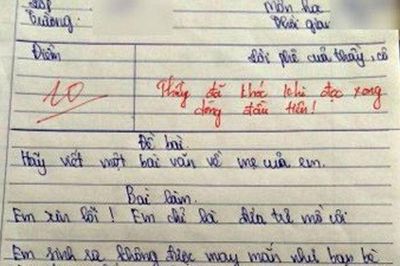 Lớp
Môn học
Trường:
Thời gian
Điểm
Lời phê của thầy, cô
10
Thầy đã khóc khi đọc xong
dòng đầu tiên!
Đề bài
Hãy viết một bài văn về mẹ của em.
Bài làm.
Em xin lỗi! Em chỉ là đứa trẻ mồ côi
Em sinh ra không được may mắn như bạn bè